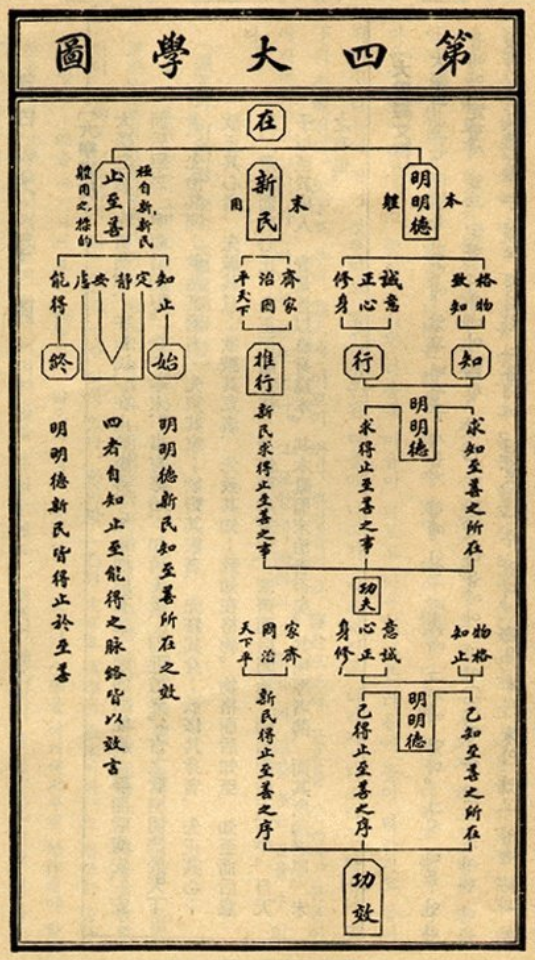 第四大學圖
在
本
明明德
軆
末
新民
用
極自新新民
止至善
軆用之標的
格物
致知
誠意
正心
修身
齊家
治囯
平天下
知止
定
靜
安
慮
能得
知
行
推行
始
終
明明德
求知至善之所在
求得止至善之事
新民求得止至善之事
明明德新民知至善所在之效
四者自知止至能得之脉絡皆以效言
明明德新民皆得止於至善
功夫
物格
知止
意誠
心正
身修
家齊
囯治
天下平
明明德
已知至善之所在
已得止至善之序
新民得止至善之序
功效